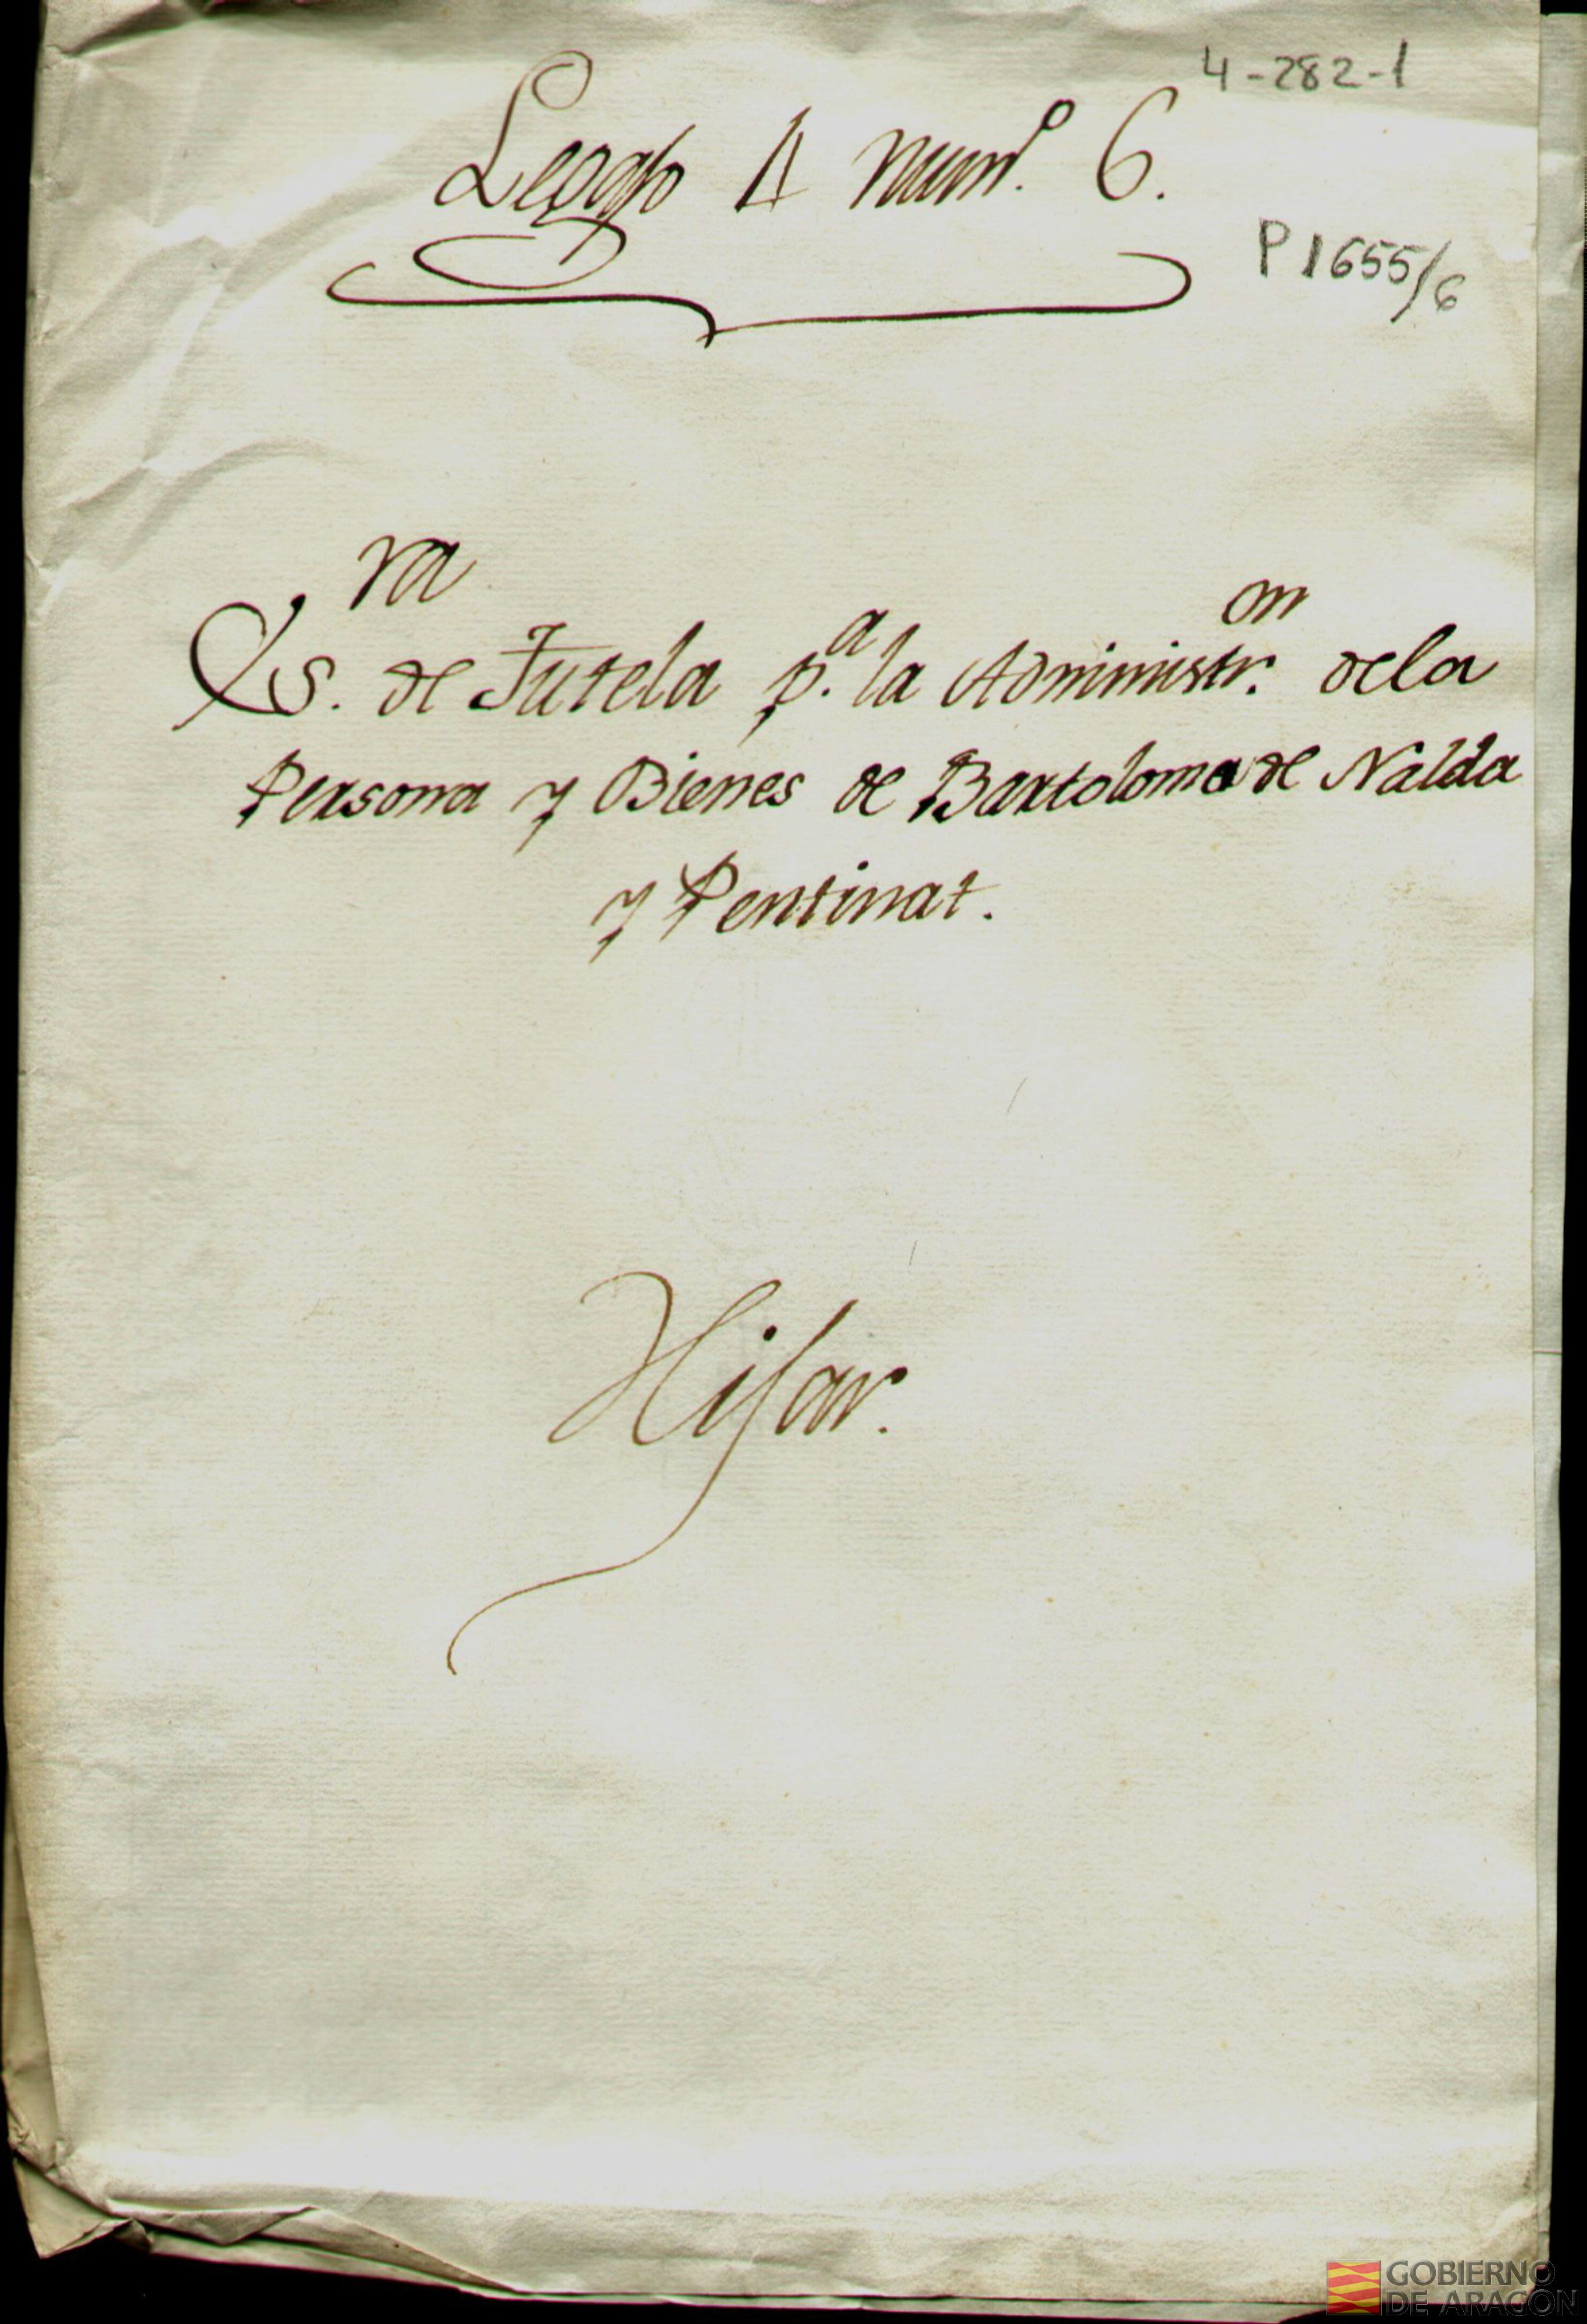 4-282-1
Legajo 4 num.º 6.
P 1655/6
Es.ra de Tutela p.a la Administr.on de la
Persona y Bienes de Bartolome de Nalda
y Pentinat.
Hijar.
GOBIERNO
DE ARAGON